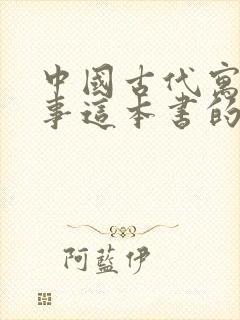 中國古代寓
事這本書的
阿藍伊